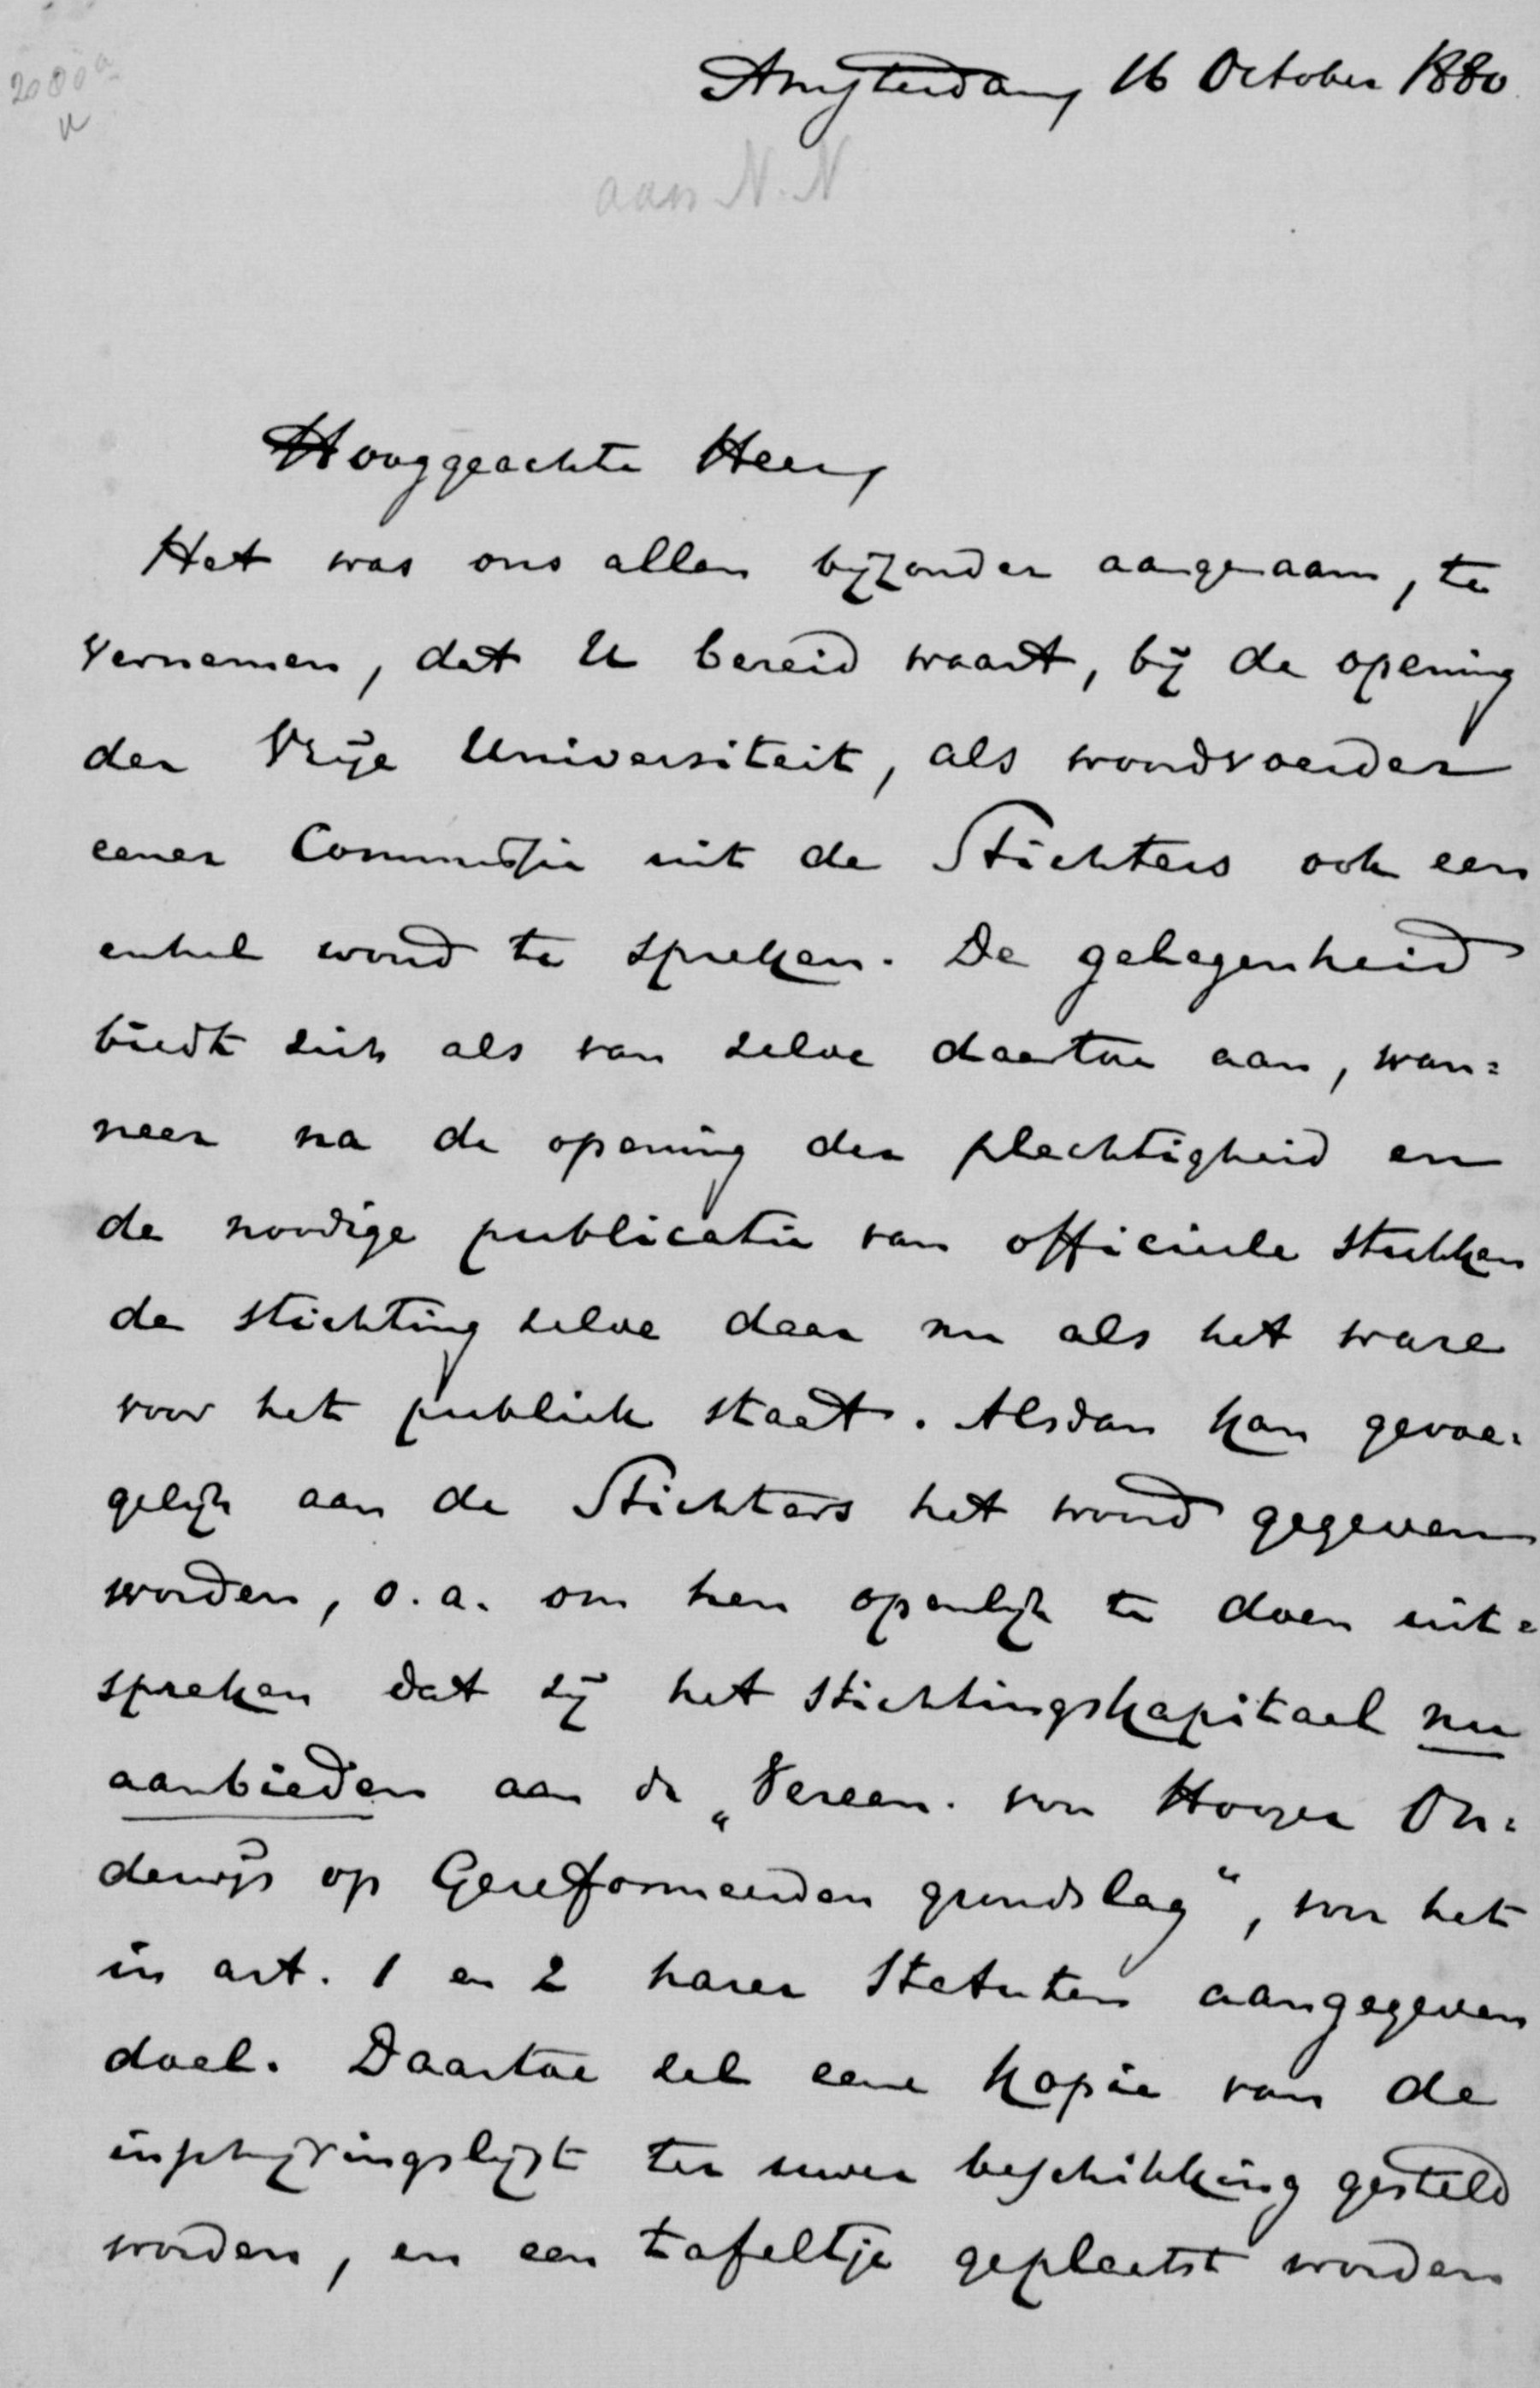 2080a
Amsterdam, 16 October 1880.
aan N.N
Hooggeachte Heer,
Het was ons allen bijzonder aangenaam, te
vernemen, dat U bereid waart, bij de opening
der Vrije Universiteit, als woordvoerder
eener Commissie uit de Stichters ook een
enkel woord te spreken. De gelegenheid
biedt zich als van zelve daartoe aan, wan=
neer na de opening der plechtigheid en
de noodige publicatie van officieele stukken
de stichting zelve daar nu als het ware
voor het publiek staat. Alsdan kan gevoe=
gelijk aan de Stichters het woord gegeven
worden, o.a. om hen openlijk te doen uit=
spreken dat zij het stichtingskapitaal nu
aanbieden aan de „Vereen. voor Hooger On=
derwijs op Gereformeerden grondslag“, voor het
in art. 1 en 2 harer Statuten aangegeven
doel. Daartoe zal eene kopie van de
inschrijvingslijst ter uwer beschikking gesteld
worden, en een tafeltje geplaatst worden